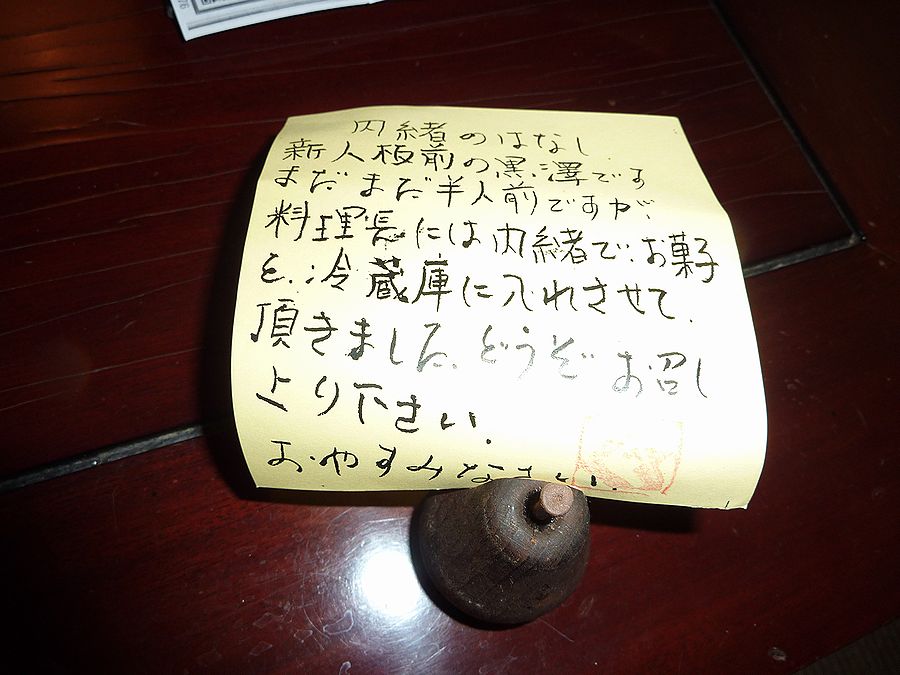 内緒のはなし
新人板前の黒澤です
まだまだ半人前ですが、
料理長には内緒で、お菓子
を、冷蔵庫に入れさせて
頂きました、どうぞお召し
上り下さい。
おやすみなさい。